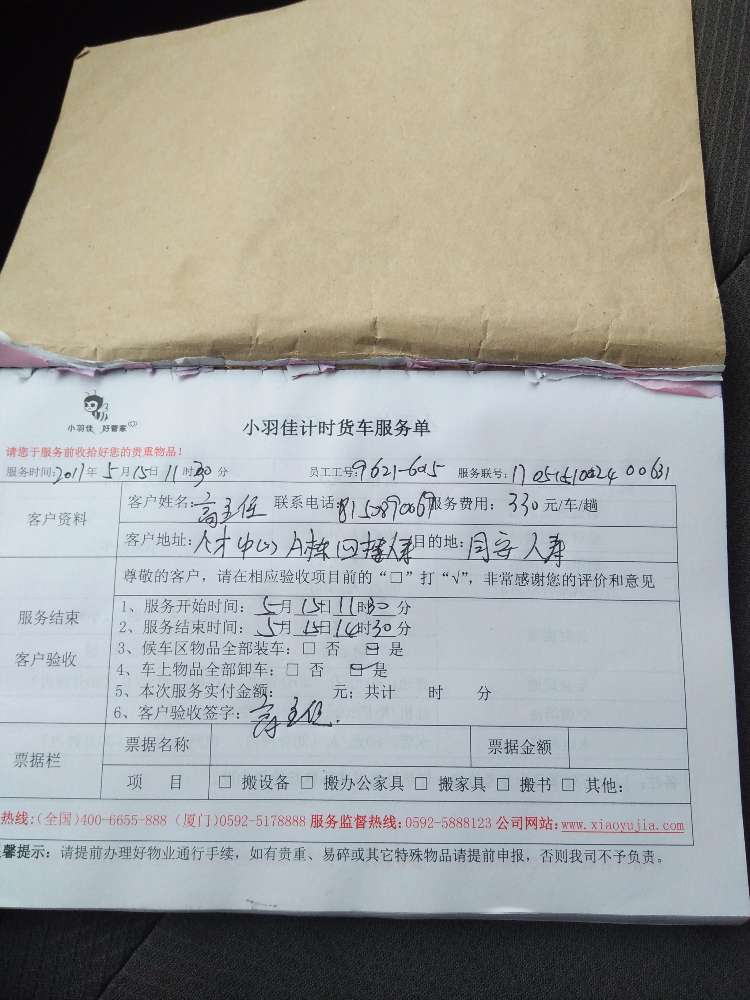 小羽佳 好管家
小羽佳计时货车服务单
请您于服务前收拾好您的贵重物品!
服务时间:2017年5月15日11时30分 员工工号:9621-605 服务联号:17051510024 00631
客户资料
客户姓名:高主任 联系电话:8150890067 服务费用:330元/车/趟
客户地址:人才中心A栋四楼人寿 目的地:同安人寿
尊敬的客户,请在相应验收项目前的“□”打“√”,非常感谢您的评价和意见
服务结束
客户验收
1、服务开始时间:5月15日11时30分
2、服务结束时间:5月15日14时30分
3、候车区物品全部装车:□ 否 □ 是
4、车上物品全部卸车:□ 否 □ 是
5、本次服务实付金额: 元;共计 时 分
6、客户验收签字:高主任
票据栏
票据名称 票据金额
项 目 □ 搬设备 □ 搬办公家具 □ 搬家具 □ 搬书 □ 其他:
热线:(全国)400-6655-888 (厦门)0592-5178888 服务监督热线:0592-5888123 公司网站:www.xiaoyujia.com
馨提示:请提前办理好物业通行手续,如有贵重、易碎或其它特殊物品请提前申报,否则我司不予负责。